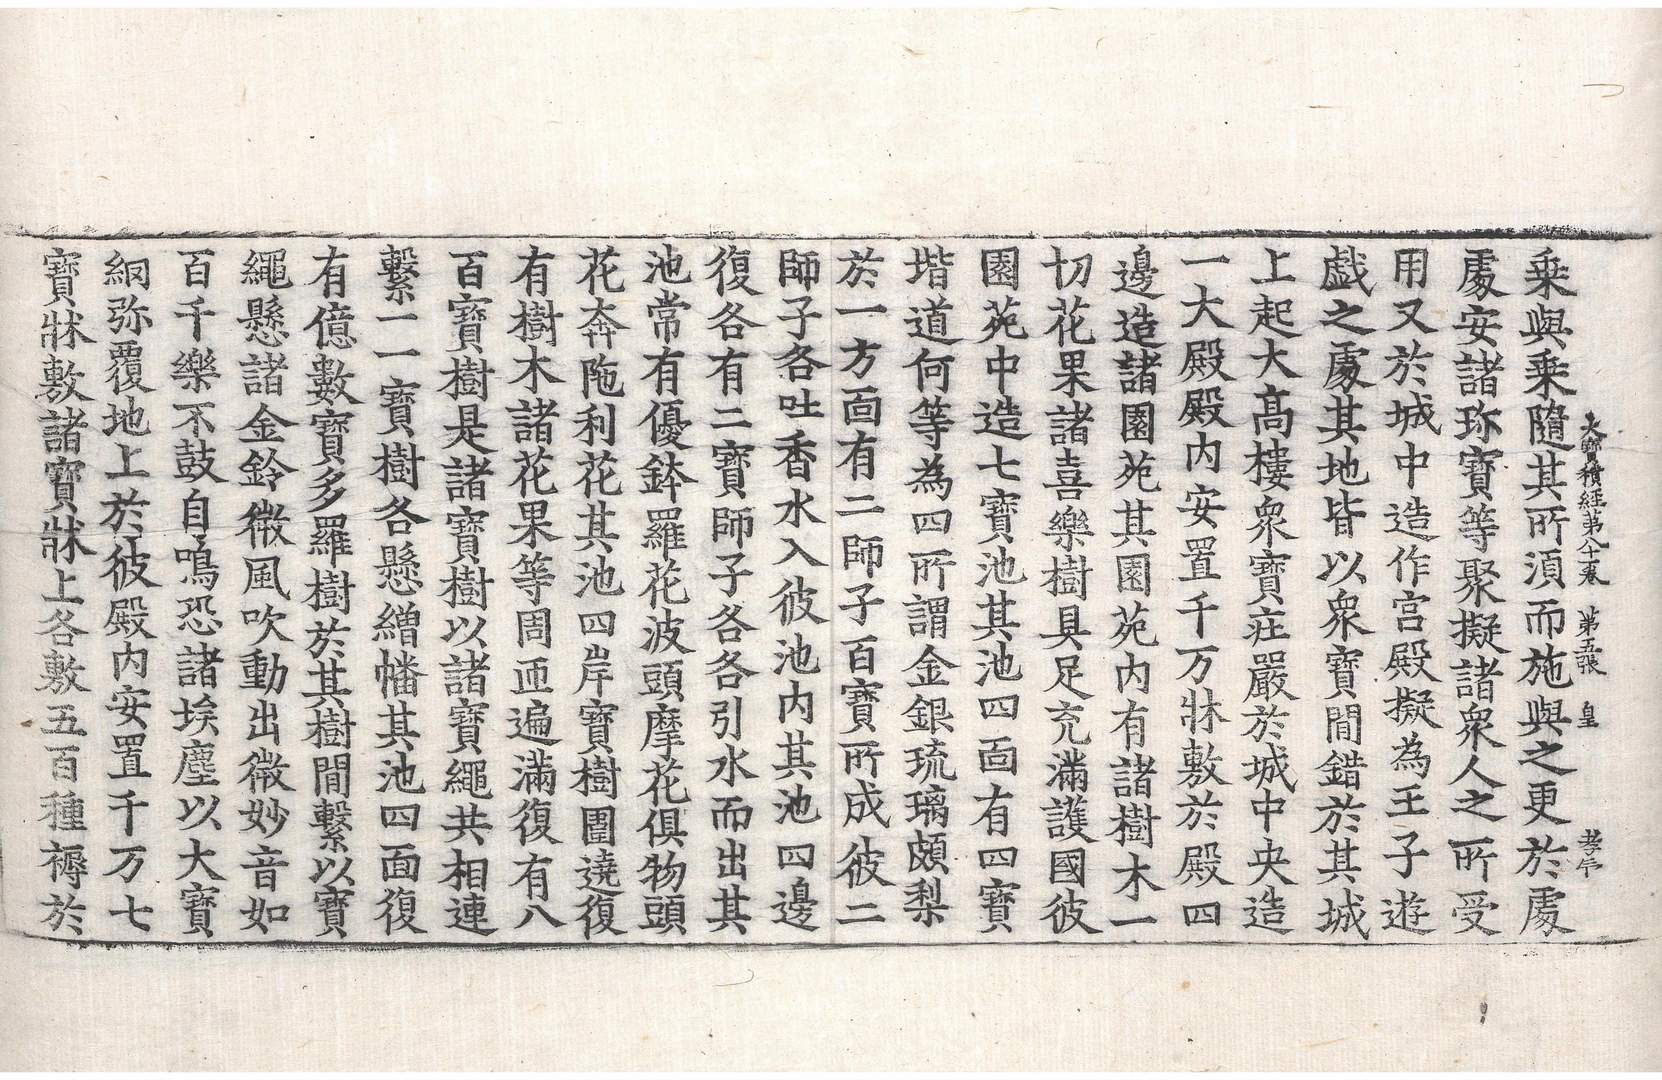 大寶積經第八十卷　第五張　皇
乗與乗隨其所湏而施與之更於處
處安諸珎寶等聚擬諸衆人之所受
用又於城中造作宫殿擬為王子遊
戯之處其地皆以衆寶間錯於其城
上起大髙樓衆寶莊嚴於城中央造
一大殿殿内安置千万牀敷於殿四
邊造諸園苑其園苑内有諸樹木一
切花果諸喜樂樹具足充滿護國彼
園苑中造七寶池其池四面有四寶
堦道何等為四所謂金銀琉璃頗梨
於一方面有二師子百寶所成彼二
師子各吐香水入彼池内其池四邊
復各有二寶師子各各引水而出其
池常有優鉢羅花波頭摩花俱物頭
花奔陁利花其池四岸寶樹圍遶復
有樹木諸花果等周匝遍滿復有八
百寶樹是諸寶樹以諸寶繩共相連
繫一一寶樹各懸繒幡其池四面復
有億數寶多羅樹於其樹間繫以寶
繩懸諸金鈴微風吹動出微妙音如
百千樂不鼓自鳴恐諸埃塵以大寶
網弥覆地上於彼殿内安置千万七
寶牀敷諸寶牀上各敷五百種褥於